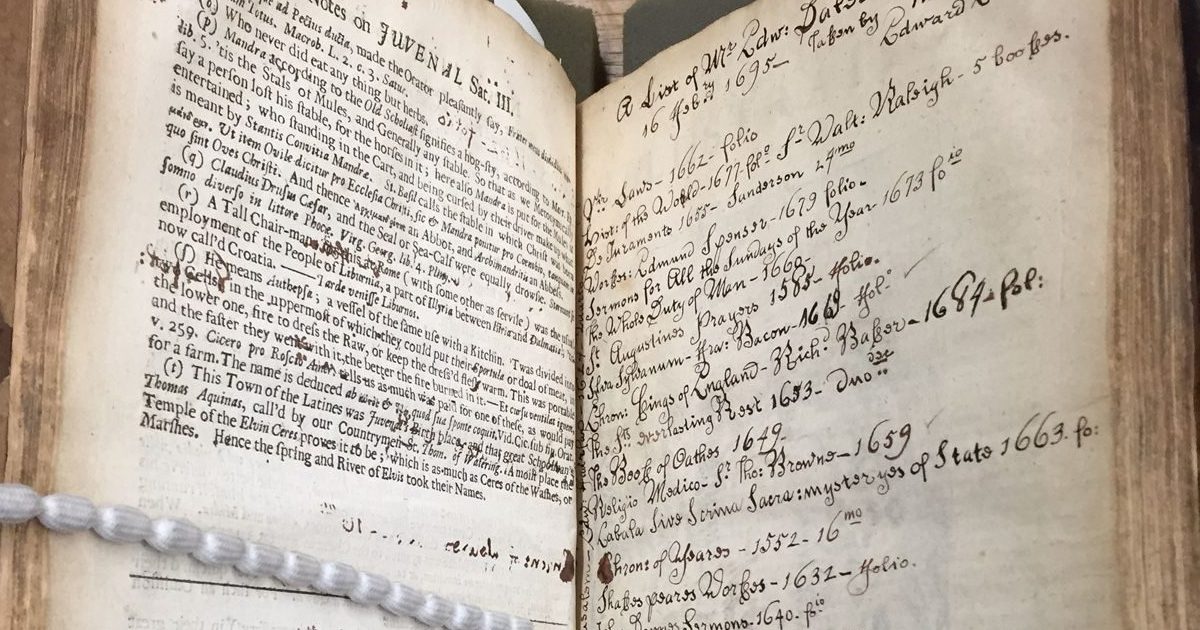 Notes on JUVENAL Sat. III.
ad Pectius ducta, made the Orator pleasantly say,
Lotus. Macrob. L. 2. c. 3. Satur.
(o) Who never did eat any thing but herbs.
(p) Mandra according to the Old Scholiast signifies a hog-sty, according to
lib. 5. 'tis the Stals of Mules, and Generally any stable. So that as we
say a person lost his stable, for the horses in it; here also Mandra is put for the
entertained; who standing in the Cart, and being cursed by their driver make
as meant by Stantis Convitia Mandræ. St. Basil calls the stable in which Christ was
Ut item Ovile dicitur pro Ecclesia Christi, sic & Mandra ponitur pro Cœnobio,
quo sint Oves Christi. And thence an Abbot, and Archimandritis an Abbess.
(q) Claudius Drusus Cæsar, and the Seal or Sea-Calf were equally drowsie.
somno diverso in littore Phocæ. Virg. Georg. lib. 4.
(r) A Tall Chair-man at Rome (with some other as servile) was the
employment of the People of Liburnia, a part of Illyria between Istria and Dalmatia,
now call'd Croatia. —— Tarde venisse Liburnos.
(s) He means Authepsæ; a vessel of the same use with a Kitchin. 'Twas divided into
two Cells, in the uppermost of which they could put their sportula or doal of meat, in
the lower one, fire to dress the Raw, or keep the dress'd flesh warm. This was portable
and the faster they went with it, the better the fire burned in it: — Et cursu ventilat ignem.
v. 259. Cicero pro Roscio Amer. tells us as much was paid for one of these, as would pay
for a farm. The name is deduced quod sua sponte coquit. Vid. Cic.
(t) This Town of the Latines was Juvenal's Birth place, and that great Schoolman's
Thomas Aquinas, call'd by our Countrymen St. Thom. of Watering. A moist place the
Temple of the Elvin Ceres proves it to be; which is as much as Ceres of the Washes, or
Marshes. Hence the spring and River of Elvis took their Names.
A List of Mr Edw:
Taken by
Edward
16 Febry 1695 —
Laws — 1662 — folio
Hist: of the World — 1677 — folo Sr Walt: Raleigh — 5 bookes.
De Juramento 1655 — Sanderson 24mo
Workes: Edmund Spenser — 1679 folio —
Sermons for All the Sundays of the Year — 1673 foio
The Whole Duty of Man — 1668 —
St Augustines Prayers 1585 — folio.
Silva Sylvarum — Fra: Bacon — 1669 — ffol:
Chron: Kings of England — Richd Baker — 1684 — fol:
The Sts everlasting Rest 1653 — Duo
The Book of Oathes 1649 —
Religio Medico — Sr Tho: Browne — 1659
Cabala sive Scrina Sacra: mysteryes of State 1663. fo:
Chron: of Yeares — 1552 — 16mo
Shakespeares Workes — 1632 — ffolio.
Donnes Sermons — 1640. foio